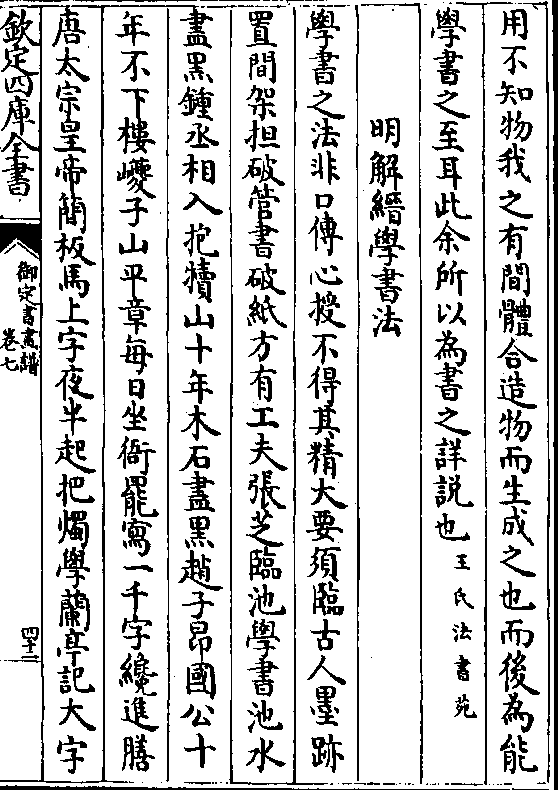 用不知物我之有間體合造物而生成之也而後為能
學書之至耳此余所以為書之詳説也王氏法書苑
明解縉學書法
學書之法非口傳心授不得其精大要須臨古人墨跡
置間架担破管書破紙方有工夫張芝臨池學書池水
盡黑鍾丞相入抱犢山十年木石盡黑趙子昻國公十
年不下樓巙子山平章每日坐衙罷寫一千字纔進膳
唐太宗皇帝簡板馬上字夜半起把燭學蘭亭記大字
欽定四庫全書
御定書畫譜
卷七
四十二